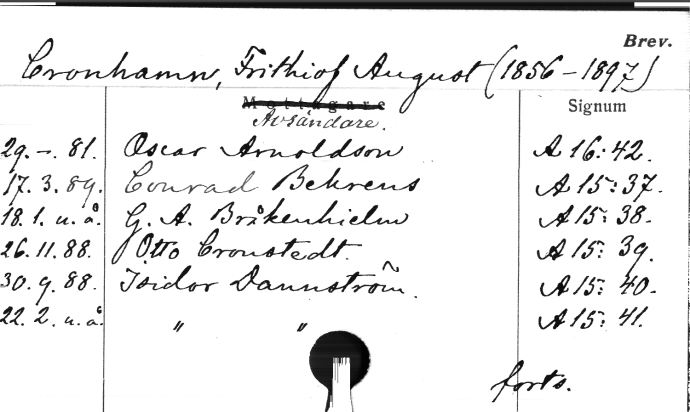 Brev.
Cronhamn, Frithiof August (1856-1897)
Mottagare
Avsändare.
Signum
29. –. 81. Oscar Arnoldson A 16: 42.
17. 3. 89. Conrad Behrens A 15: 37.
18. 1. u. å. G. A. Bråkenhielm A 15: 38.
26. 11. 88. Otto Cronstedt. A 15: 39.
30. 9. 88. Isidor Dannström. A 15: 40.
22. 2. u. å. " " A 15: 41.
forts.